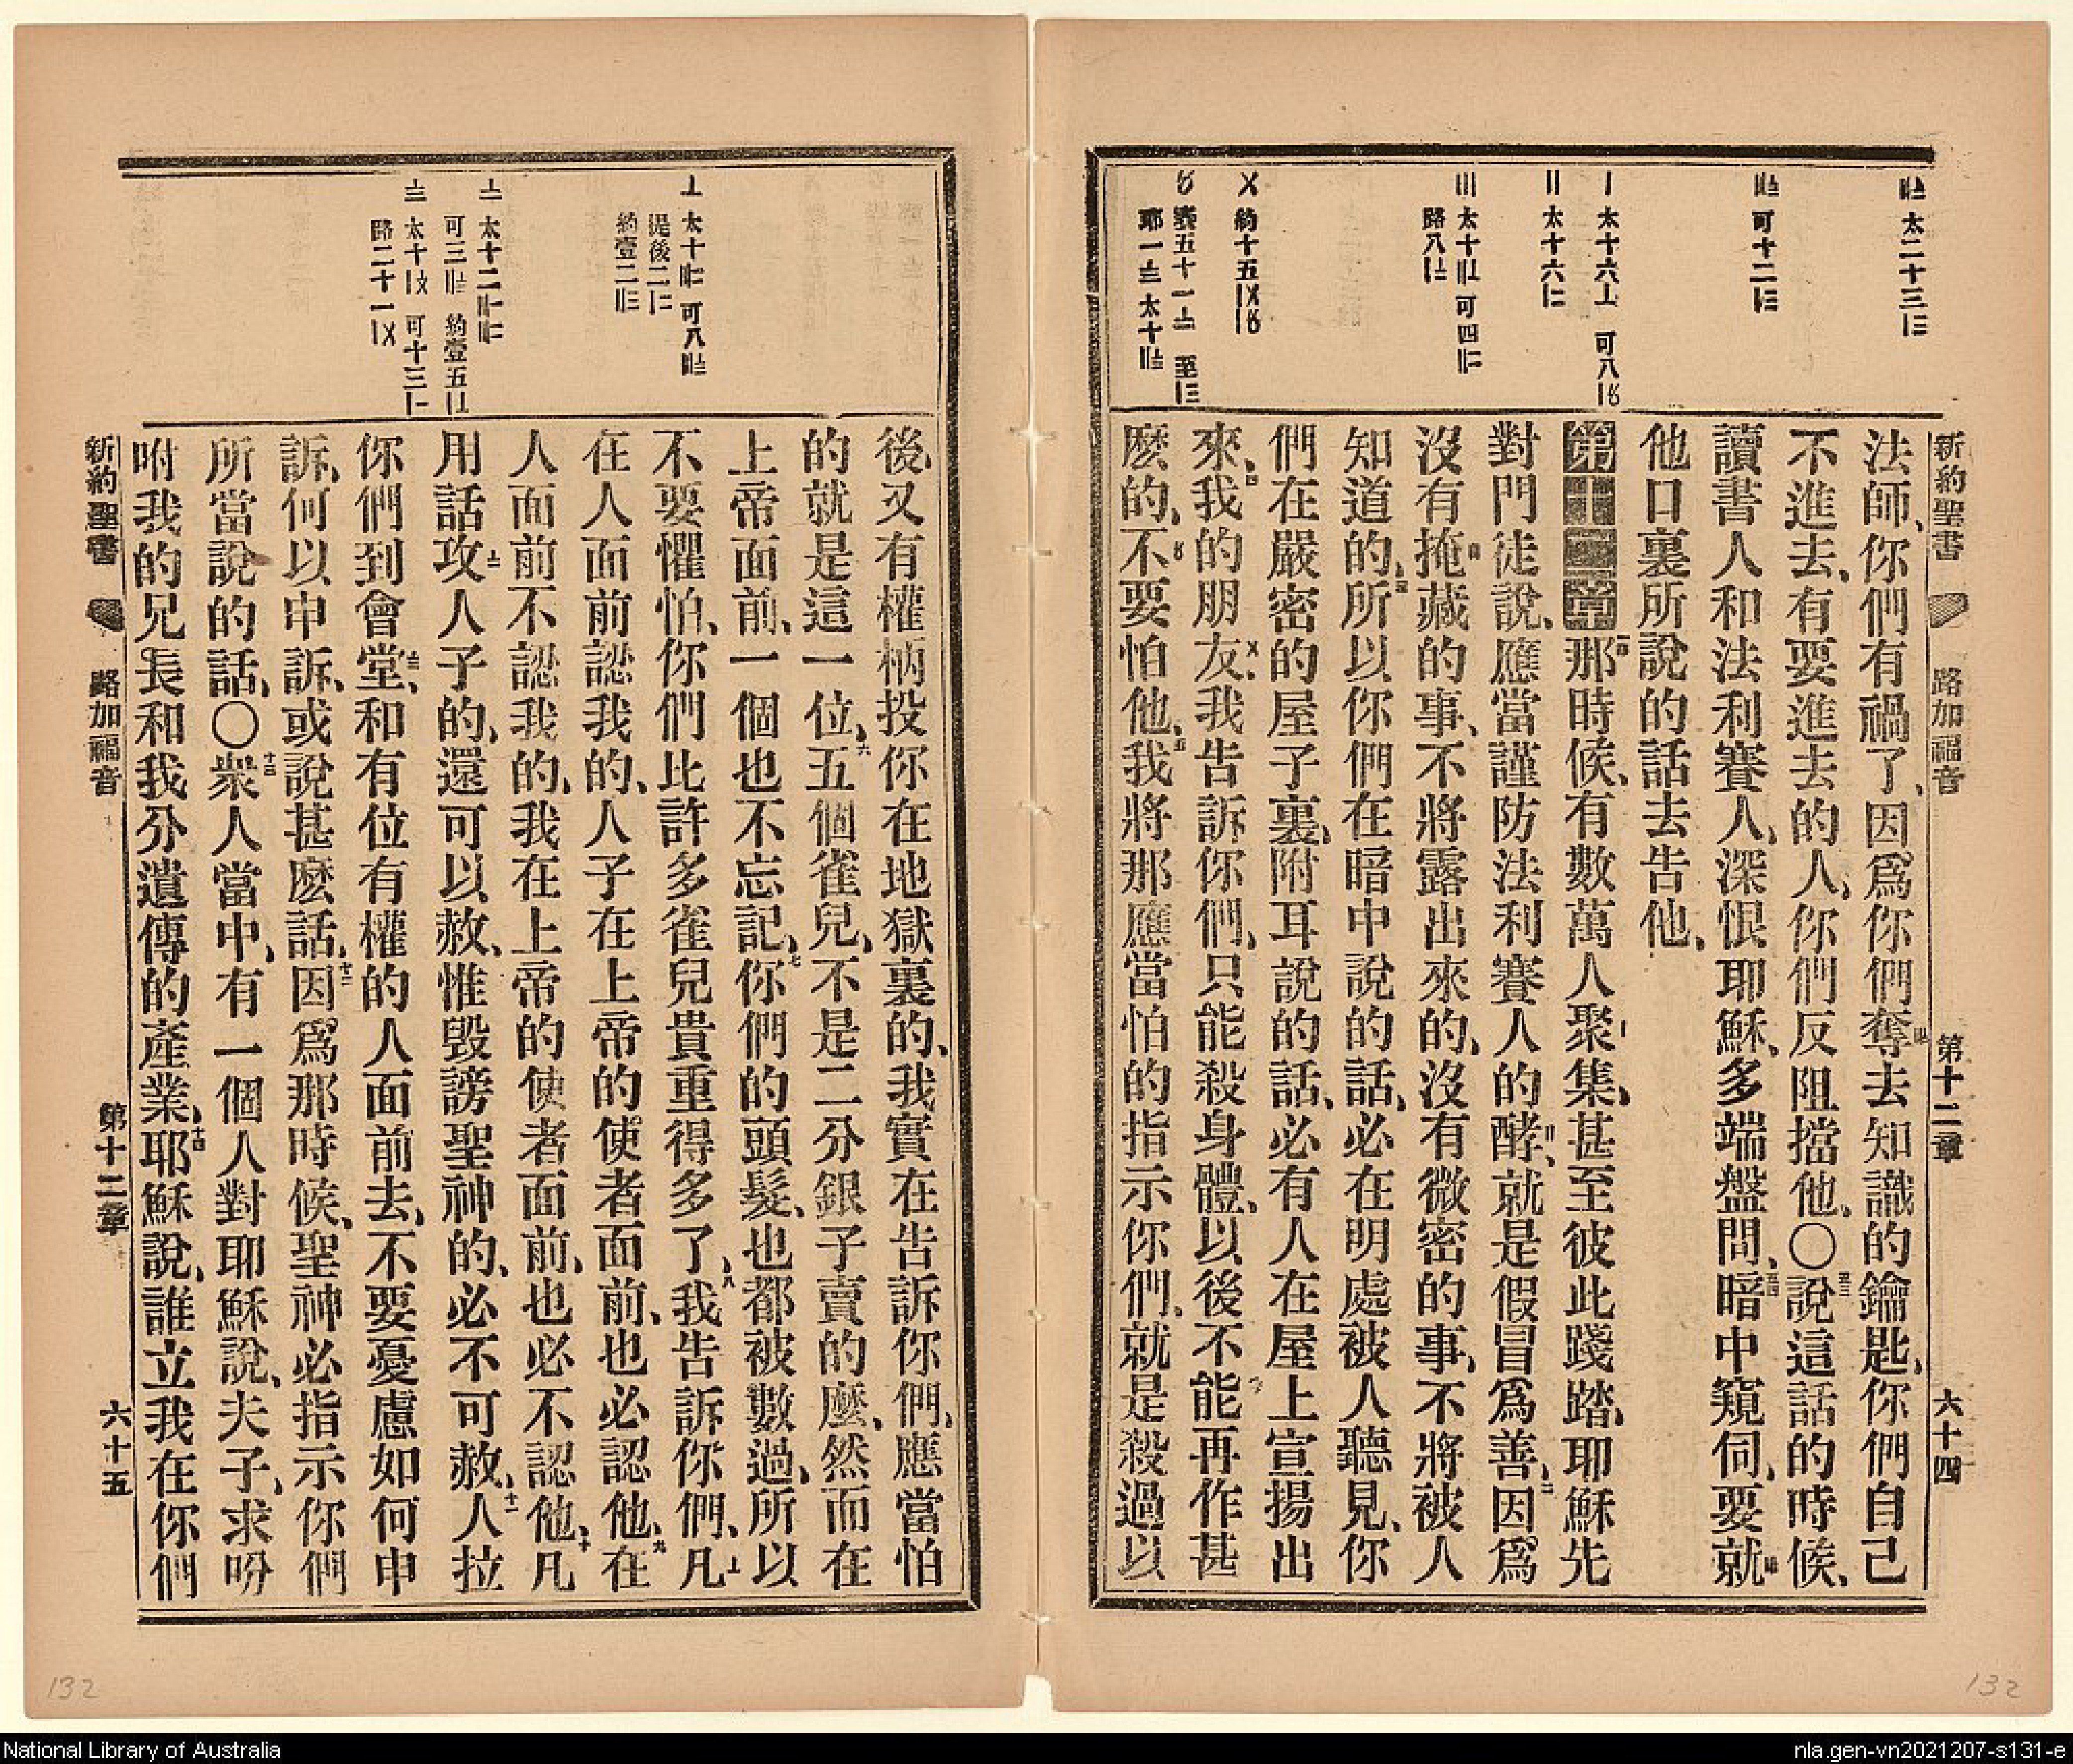 新約聖書 路加福音 第十二章 六十四
〨 太二十三〣
〨 可十二〣
〡 太十六〦 可八〡〥
〢 太十六〡二
〣 太十〢〦 可四〢二
路八〡〧
〤 約十五〡〤〡〥
〥 賽五十一〧 至〡三
耶一〨 太十〢〨
法師、你們有禍了、因爲你們奪去知識的鑰匙、你們自己
不進去、有要進去的人、你們反阻擋他、〇五三說這話的時候、
讀書人和法利賽人、深恨耶穌、多端盤問、五四暗中窺伺、要就
他口裏所說的話去告他、
第十二章一那時候、有數萬人聚集、甚至彼此踐踏、耶穌先
對門徒說、應當謹防法利賽人的酵、就是假冒爲善、二因爲
沒有掩藏的事、不將露出來的、沒有微密的事、不將被人
知道的、三所以你們在暗中說的話、必在明處被人聽見、你
們在嚴密的屋子裏、附耳說的話、必有人在屋上宣揚出
來、四我的朋友、我告訴你們、只能殺身體、以後不能再作甚
麽的、不要怕他、五我將那應當怕的指示你們、就是殺過以
〦 太十〢〧 可八〣〨
提後二〡二
約壹二〢三
二 太十二〣〡〣二
可三〢〨 約壹五〡〦
三 太十〡〩 可十三〡一
路二十一〡〤
後、又有權柄投你在地獄裏的、我實在告訴你們、應當怕
的就是這一位、六五個雀兒、不是二分銀子賣的麽、然而在
上帝面前、一個也不忘記、七你們的頭髮、也都被數過、所以
不要懼怕、你們比許多雀兒貴重得多了、八我告訴你們、凡
在人面前認我的、人子在上帝的使者面前、也必認他、九在
人面前不認我的、我在上帝的使者面前、也必不認他、十凡
用話攻人子的、還可以赦、惟毀謗聖神的、必不可赦、十一人拉
你們到會堂、和有位有權的人面前去、不要憂慮如何申
訴、何以申訴、或說甚麽話、十二因爲那時候、聖神必指示你們
所當說的話、〇十三衆人當中、有一個人對耶穌說、夫子、求吩
咐我的兄長和我分遺傳的產業、十四耶穌說、誰立我在你們
新約聖書 路加福音 第十二章 六十五
132
132
National Library of Australia
nla.gen-vn2021207-s131-e